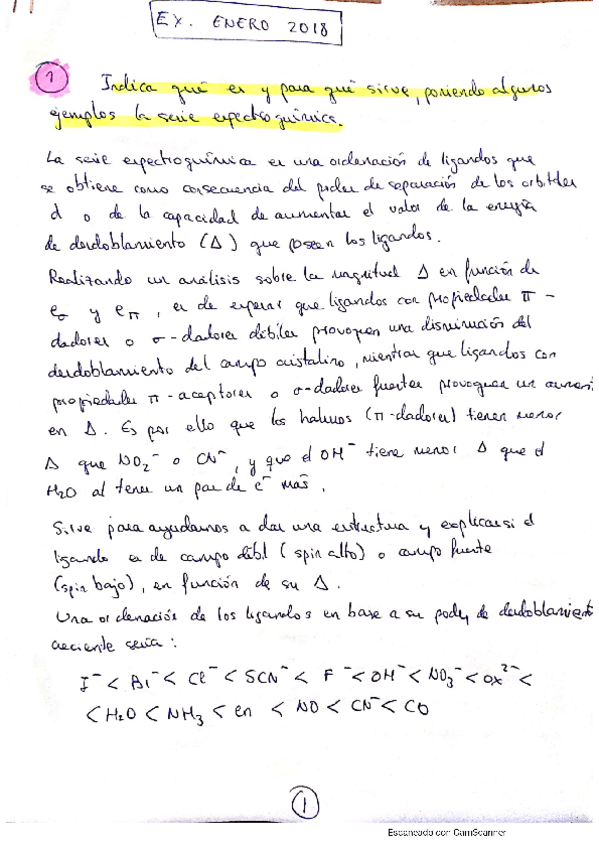 EX. ENERO 2018
1 Indica qué es y para qué sirve, poniendo algunos
ejemplos la serie espectroquímica.
La serie espectroquímica es una ordenación de ligandos que
se obtiene como consecuencia del poder de separación de los orbitales
d o de la capacidad de aumentar el valor de la energía
de desdoblamiento (Δ) que poseen los ligandos.
Realizando un análisis sobre la magnitud Δ en función de
eσ y eπ, es de esperar que ligandos con propiedades π-
dadores o σ-dadores débiles provoquen una disminución del
desdoblamiento del campo cristalino, mientras que ligandos con
propiedades π-aceptores o σ-dadores fuertes provoquen un aument
en Δ. Es por ello que los haluros (π-dadores) tienen menor
Δ que NO2⁻ o CN⁻, y que el OH⁻ tiene menor Δ que el
H2O al tener un par de e⁻ más.
Sirve para ayudarnos a dar una estructura y explicar si el
ligando es de campo débil (spin alto) o campo fuerte
(spin bajo), en función de su Δ.
Una ordenación de los ligandos en base a su poder de desdoblamient
creciente sería:
I⁻ < Br⁻ < Cl⁻ < SCN⁻ < F⁻ < OH⁻ < NO3⁻ < Ox²⁻ <
< H2O < NH3 < en < NO < CN⁻ < CO
1
Escaneado con CamScanner